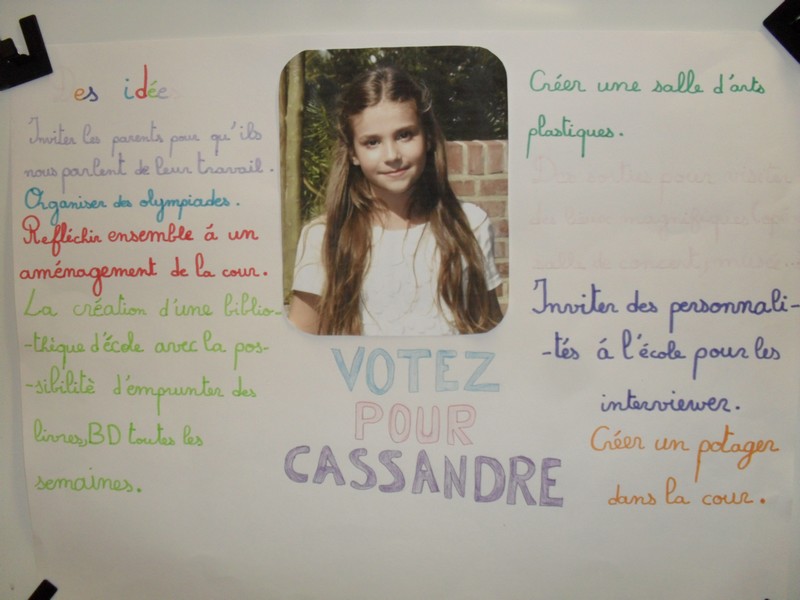 Des idées
Inviter les parents pour qu'ils
nous parlent de leur travail.
Organiser des olympiades.
Refléchir ensemble á un
aménagement de la cour.
La création d'une biblio-
-thèque d'école avec la pos-
-sibilitè d'emprunter des
livres, BD toutes les
semaines.
VOTEZ
POUR
CASSANDRE
Créer une salle d'arts
plastiques.
Des sorties pour
Inviter des personnali-
-tés á l'école pour les
interviewer.
Créer un potager
dans la cour.